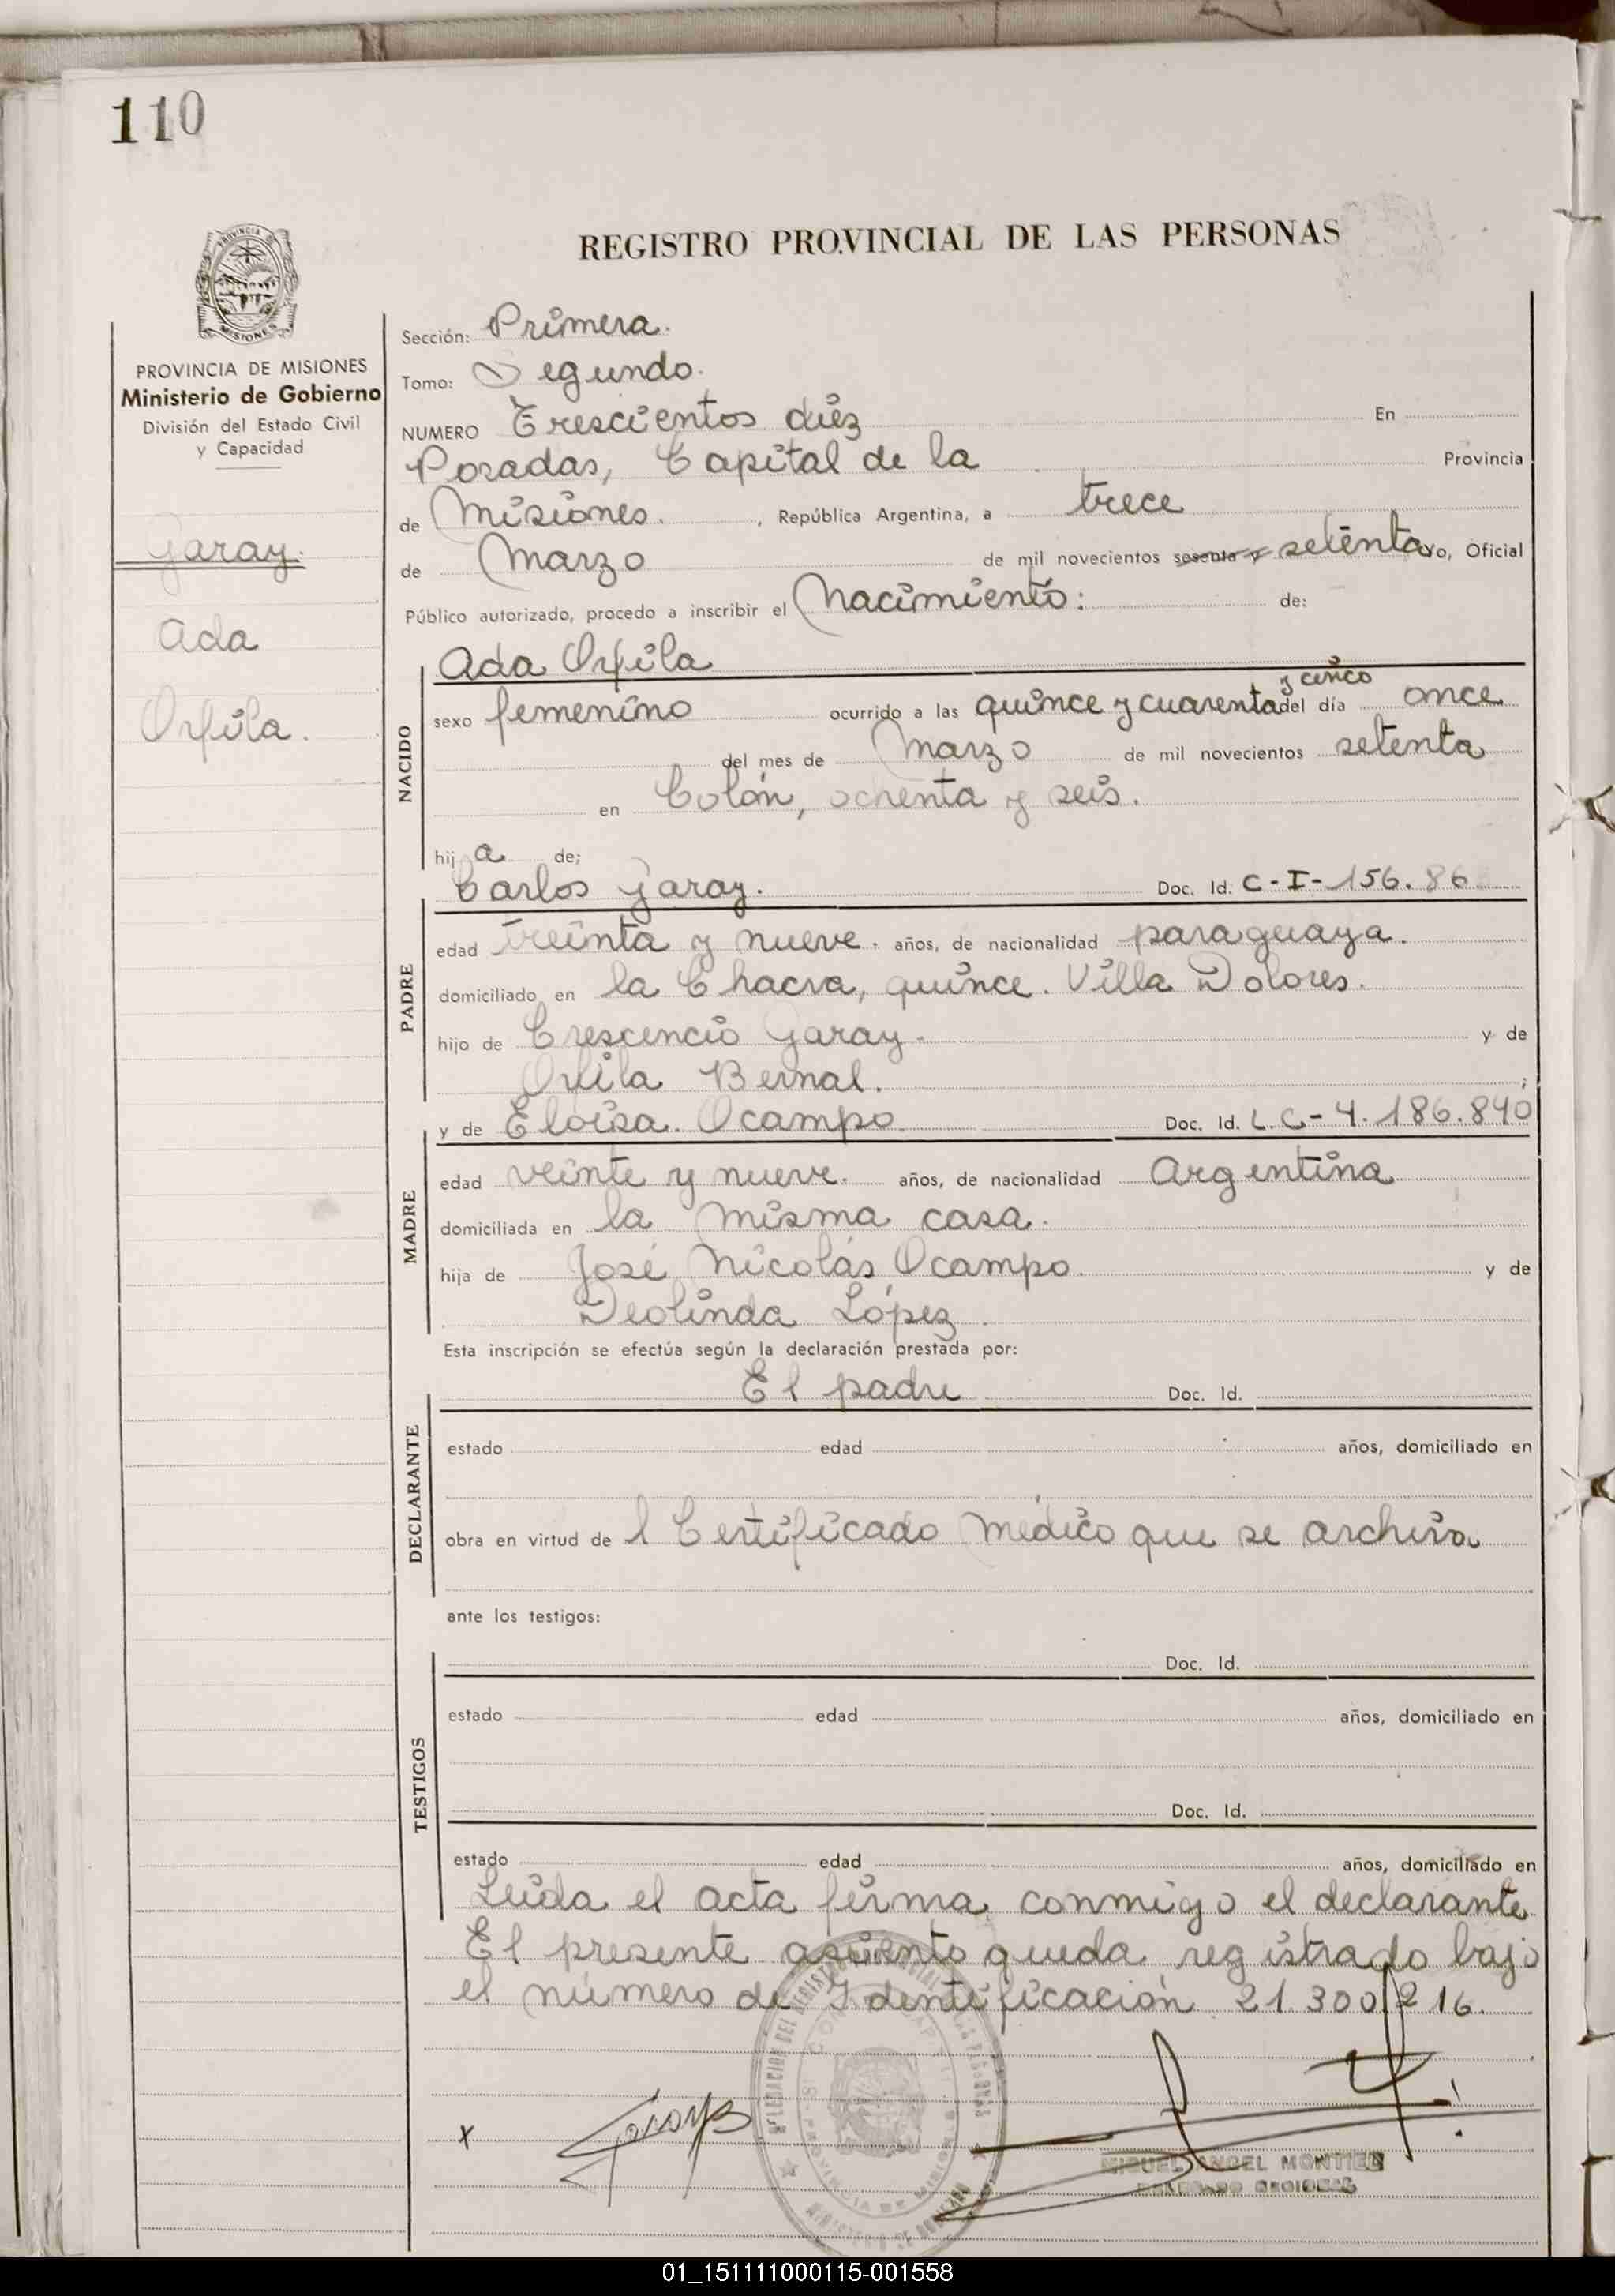 110
REGISTRO PROVINCIAL DE LAS PERSONAS
PROVINCIA DE MISIONES
Ministerio de Gobierno
División del Estado Civil
y Capacidad
Garay.
Ada
Orfila.
Sección: Primera.
Tomo: Segundo.
NUMERO Trescientos diez En
Posadas, Capital de la Provincia
de Misiones. , República Argentina, a trece
de Marzo de mil novecientos sesenta y setenta Yo, Oficial
Público autorizado, procedo a inscribir el Nacimiento: de:
Ada Orfila
NACIDO
y cinco
sexo femenino ocurrido a las quince y cuarenta del día once
del mes de Marzo de mil novecientos setenta
en Colón, ochenta y seis.
hij a de;
Carlos Garay. Doc. Id. C-I-156.86
PADRE
edad treinta y nueve. años, de nacionalidad paraguaya.
domiciliado en la Chacra, quince. Villa Dolores.
hijo de Crescencio Garay- y de
Orfila Bernal. ;
y de Eloisa. Ocampo. Doc. Id. L.C-4.186.840
MADRE
edad veinte y nueve. años, de nacionalidad Argentina
domiciliada en la misma casa.
hija de José Nicolás Ocampo. y de
Deolinda López.
Esta inscripción se efectúa según la declaración prestada por:
El padre Doc. Id.
DECLARANTE
estado edad años, domiciliado en
obra en virtud de l Certificado Médico que se archiva
ante los testigos:
Doc. Id.
TESTIGOS
estado edad años, domiciliado en
Doc. Id.
estado edad años, domiciliado en
Leida el acta firma conmigo el declarante
El presente asiento queda registrado bajo
el número de Identificación 21.300.216.
x Garay
MIGUEL ANGEL MONTIEL
01_151111000115-001558